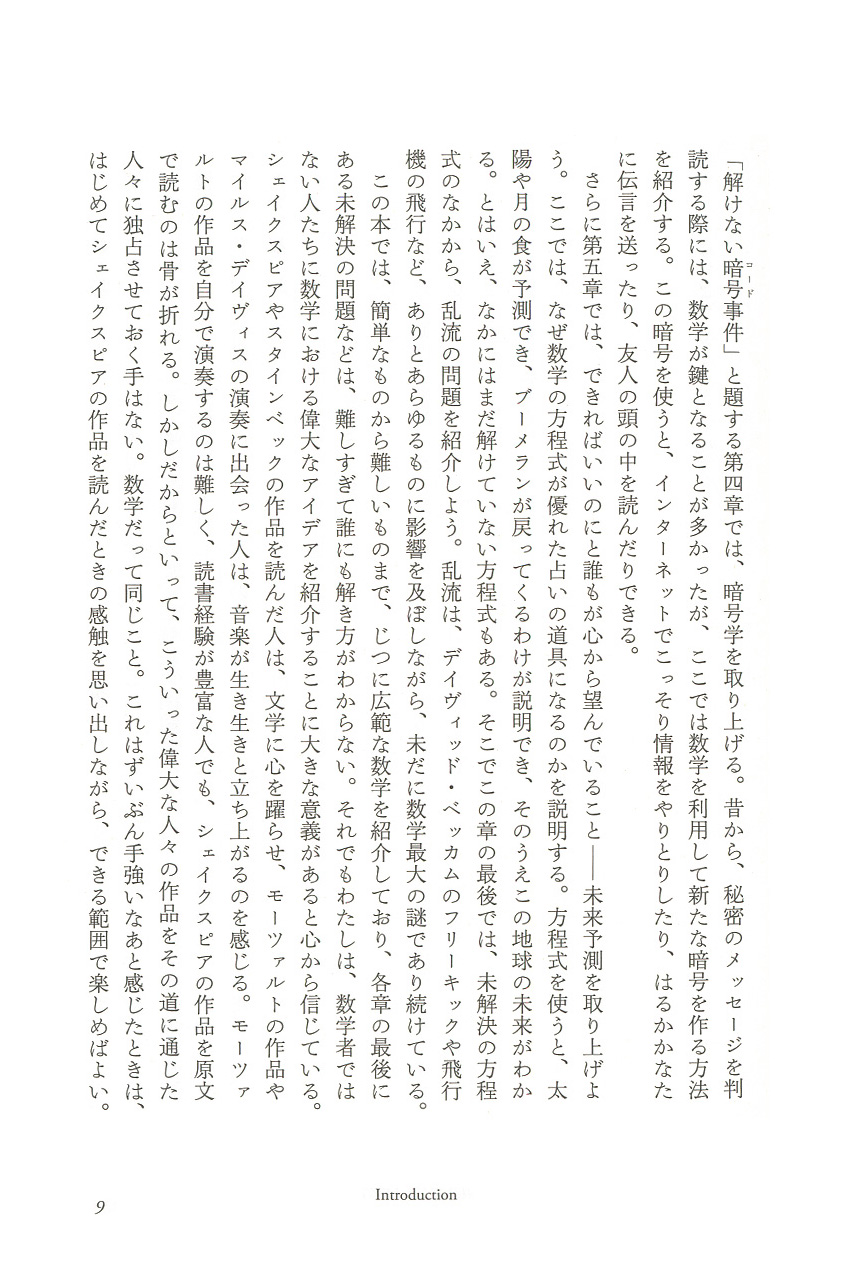 「解けない暗号事件」と題する第四章では、暗号学を取り上げる。昔から、秘密のメッセージを判
コード
読する際には、数学が鍵となることが多かったが、ここでは数学を利用して新たな暗号を作る方法
を紹介する。この暗号を使うと、インターネットでこっそり情報をやりとりしたり、はるかかなた
に伝言を送ったり、友人の頭の中を読んだりできる。
さらに第五章では、できればいいのにと誰もが心から望んでいること——未来予測を取り上げよ
う。ここでは、なぜ数学の方程式が優れた占いの道具になるのかを説明する。方程式を使うと、太
陽や月の食が予測でき、ブーメランが戻ってくるわけが説明でき、そのうえこの地球の未来がわか
る。とはいえ、なかにはまだ解けていない方程式もある。そこでこの章の最後では、未解決の方程
式のなかから、乱流の問題を紹介しよう。乱流は、デイヴィッド・ベッカムのフリーキックや飛行
機の飛行など、ありとあらゆるものに影響を及ぼしながら、未だに数学最大の謎であり続けている。
この本では、簡単なものから難しいものまで、じつに広範な数学を紹介しており、各章の最後に
ある未解決の問題などは、難しすぎて誰にも解き方がわからない。それでもわたしは、数学者では
ない人たちに数学における偉大なアイデアを紹介することに大きな意義があると心から信じている。
シェイクスピアやスタインベックの作品を読んだ人は、文学に心を躍らせ、モーツァルトの作品や
マイルス・デイヴィスの演奏に出会った人は、音楽が生き生きと立ち上がるのを感じる。モーツァ
ルトの作品を自分で演奏するのは難しく、読書経験が豊富な人でも、シェイクスピアの作品を原文
で読むのは骨が折れる。しかしだからといって、こういった偉大な人々の作品をその道に通じた
人々に独占させておく手はない。数学だって同じこと。これはずいぶん手強いなあと感じたときは、
はじめてシェイクスピアの作品を読んだときの感触を思い出しながら、できる範囲で楽しめばよい。
Introduction
9